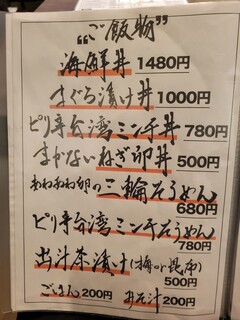 "ご飯物"
海鮮丼 1480円
まぐろ漬け丼 1000円
ピリ辛台湾ミンチ丼 780円
まかないねぎ卵丼 500円
あわあわ卵の三輪そうめん
680円
ピリ辛台湾ミンチそうめん
780円
出汁茶漬け(梅or昆布)
500円
ごはん 200円 みそ汁 200円